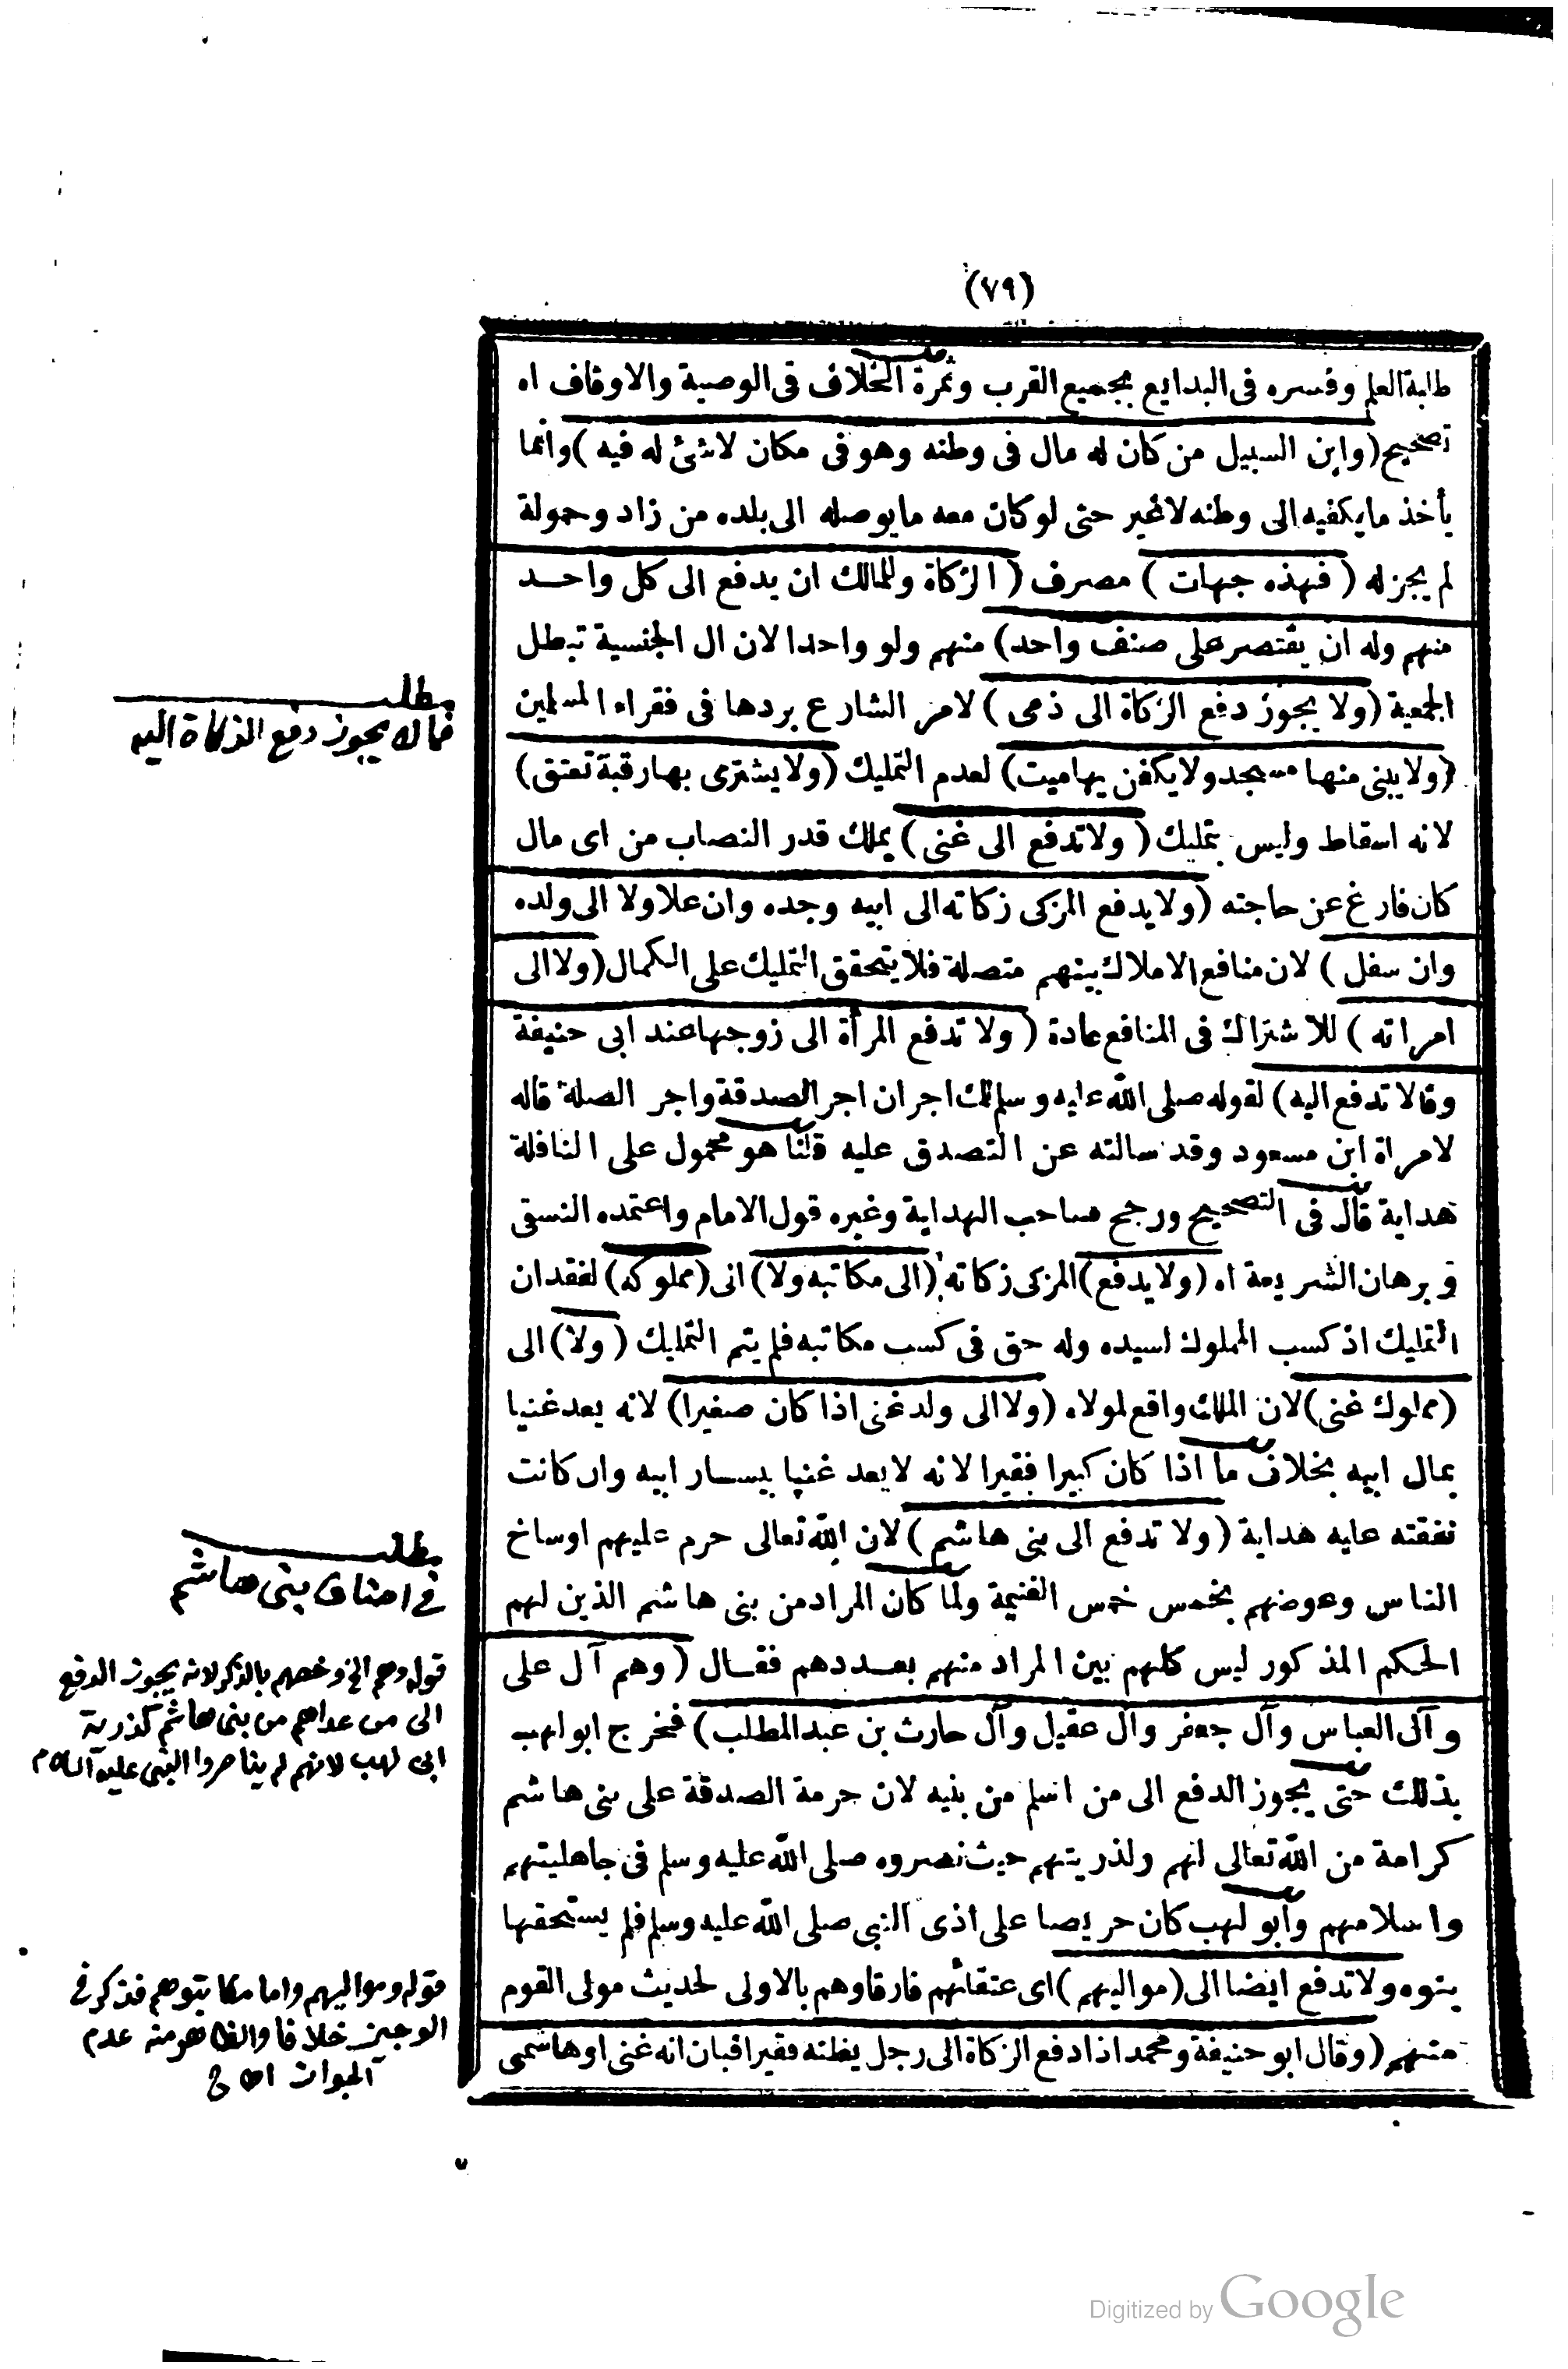 (٧٩)
طلبة العلم وفسره فى البدايع بجميع القرب وثمرة الخلاف فى الوصية والاوقاف اه
تصحيح (وابن السبيل من كان له مال فى وطنه وهو فى مكان لاشئ له فيه) وانما
يأخذ مايكفيه الى وطنه لاغير حتى لو كان معه مايوصله الى بلده من زاد وحمولة
لم يجزله (فهذه جهات) مصرف (الزكاة وللمالك ان يدفع الى كل واحد
منهم وله ان يقتصر على صنف واحد) منهم ولو واحدا لان ال الجنسية تبطل
الجمعية (ولا يجوز دفع الزكاة الى ذمى) لامر الشارع بردها فى فقراء المسلمين
(ولا يبنى منها مسجد ولا يكفن بها ميت) لعدم التمليك (ولا يشترى بها رقبة تعتق)
لانه اسقاط وليس بتمليك (ولا تدفع الى غنى) يملك قدر النصاب من اى مال
كان فارغ عن حاجته (ولا يدفع المزكى زكاته الى ابيه وجده وان علا ولا الى ولده
وان سفل) لان منافع الاملاك بينهم متصلة فلا يتحقق التمليك على الكمال (ولا الى
امراته) للاشتراك فى المنافع عادة (ولا تدفع المرأة الى زوجها عند ابى حنيفة
وقالا تدفع اليه) لقوله صلى الله عليه وسلم لك اجران اجر الصدقة واجر الصلة قاله
لامراة ابن مسعود وقد سالته عن التصدق عليه قلنا هو محمول على النافلة
هداية قال فى التصحيح ورجح صاحب الهداية وغيره قول الامام واعتمده النسفى
وبرهان الشريعة اه (ولا يدفع) المزكى زكاته (الى مكاتبه ولا) الى (مملوكه) لفقدان
التمليك اذ كسب المملوك لسيده وله حق فى كسب مكاتبه فلم يتم التمليك (ولا) الى
(مملوك غنى) لان الملك واقع لمولاه (ولا الى ولد غنى اذا كان صغيرا) لانه يعد غنيا
بمال ابيه بخلاف ما اذا كان كبيرا فقيرا لانه لا يعد غنيا بيسار ابيه وان كانت
نفقته عليه هداية (ولا تدفع الى بنى هاشم) لان الله تعالى حرم عليهم اوساخ
الناس وعوضهم بخمس خمس الغنيمة ولما كان المراد من بنى هاشم الذين لهم
الحكم المذكور ليس كلهم بين المراد منهم بعددهم فقال (وهم آل على
وآل العباس وآل جعفر وآل عقيل وآل حارث بن عبد المطلب) فخرج ابو لهب
بذلك حتى يجوز الدفع الى من اسلم من بنيه لان حرمة الصدقة على بنى هاشم
كرامة من الله تعالى لهم ولذريتهم حيث نصروه صلى الله عليه وسلم فى جاهليتهم
واسلامهم وأبو لهب كان حريصا على اذى النبى صلى الله عليه وسلم فلم يستحقها
بنوه ولا تدفع ايضا الى (مواليهم) اى عتقائهم فارقاوهم بالاولى لحديث مولى القوم
منهم (وقال ابو حنيفة ومحمد اذا دفع الزكاة الى رجل يظنه فقيرا فبان انه غنى او هاشمى
مطلب
فمالا يجوز دفع الزكاة اليه
مطلب
فى اصناف بنى هاشم
قوله وهم الخ وخصهم بالذكر لانه يجوز الدفع
الى من عداهم من بنى هاشم كذرية
ابى لهب لانهم لم يناصروا النبى عليه السلام
قوله ومواليهم واما مكاتبوهم فذكر فى
الوجيز خلافا والظاهر منه عدم
الجواز اه ج
Digitized by Google